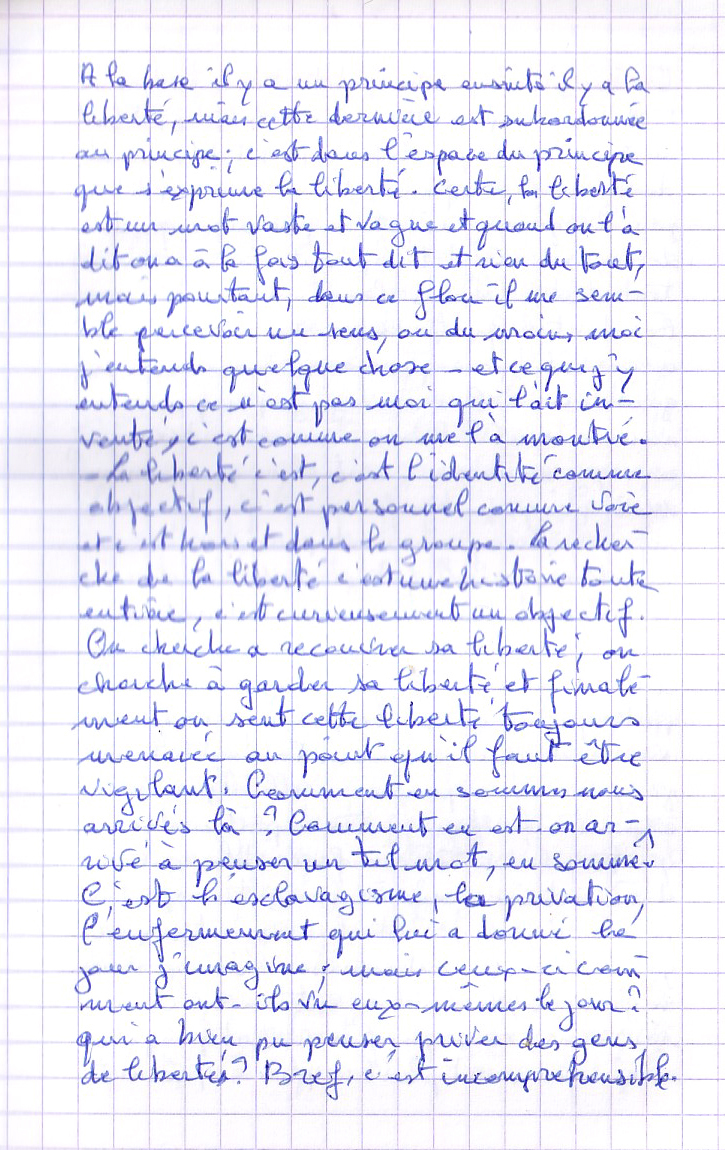 A la base il y a un principe ensuite il y a la
liberté, mais cette dernière est subordonnée
au principe ; c'est dans l'espace du principe
que s'exprime la liberté. Certe, la liberté
est un mot vaste et vague et quand on l'a
dit on a à la fois tout dit et rien du tout,
mais pourtant, dans ce flou il me sem-
ble percevoir un sens, ou du moins, moi
j'entends quelque chose - et ce que j'y
entends ce n'est pas moi qui l'ait in-
venté, c'est comme on me l'a montré.
- La liberté c'est, c'est l'identité comme
objectif, c'est personnel comme voie
et c'est hors et dans le groupe. La recher-
che de la liberté c'est une histoire toute
entière, c'est curieusement un objectif.
On cherche a recouvrer sa liberté, on
cherche à garder sa liberté et finale-
ment on sent cette liberté toujours
menacée au point qu'il faut être
vigilant. Comment en sommes nous
arrivés là ? Comment en est-on ar-
rivé à penser un tel mot, en somme ?
C'est l'esclavagisme, la privation,
l'enfermement qui lui a donné le
jour j'imagine ; mais ceux-ci com-
ment ont-ils vu eux-mêmes le jour ?
qui a bien pu penser priver des gens
de libertés ? Bref, c'est incompréhensible.